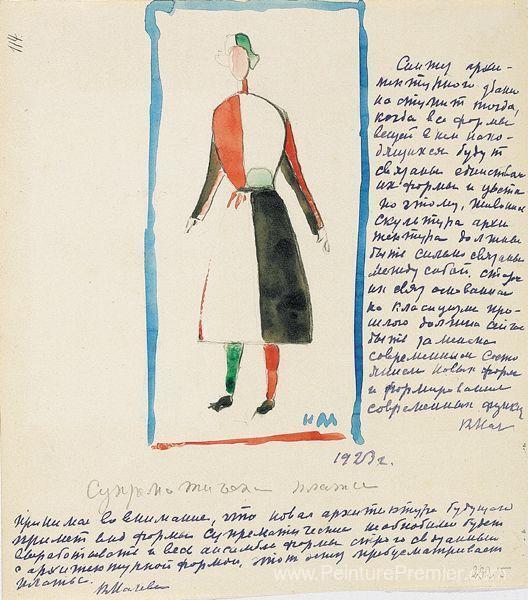 114.
Синтез архи-
тектурного здани
наступит тогда,
когда все формы
вещей в нем нахо-
дящихся будут
связаны единством
их формы и цвета
по этому, живопись
скульптура архи
тектура должны
быть сильно связаны
между собой, старая
их связ основанная
на класицизме про-
шлого должна
быть заменена
современным состо
новых форм
и формирования
современных
К Мал
НМ
1923 г.
Супрематическ платье
принимая во внимание, что новая архитектура будущего
примет вид формы супрематические необходимо будет
выработать и весь ансамбль формы строго связанный
с архитектурной формою, этот эскиз предусматривает
платье.
К Малеви
www.PeinturePremier.com